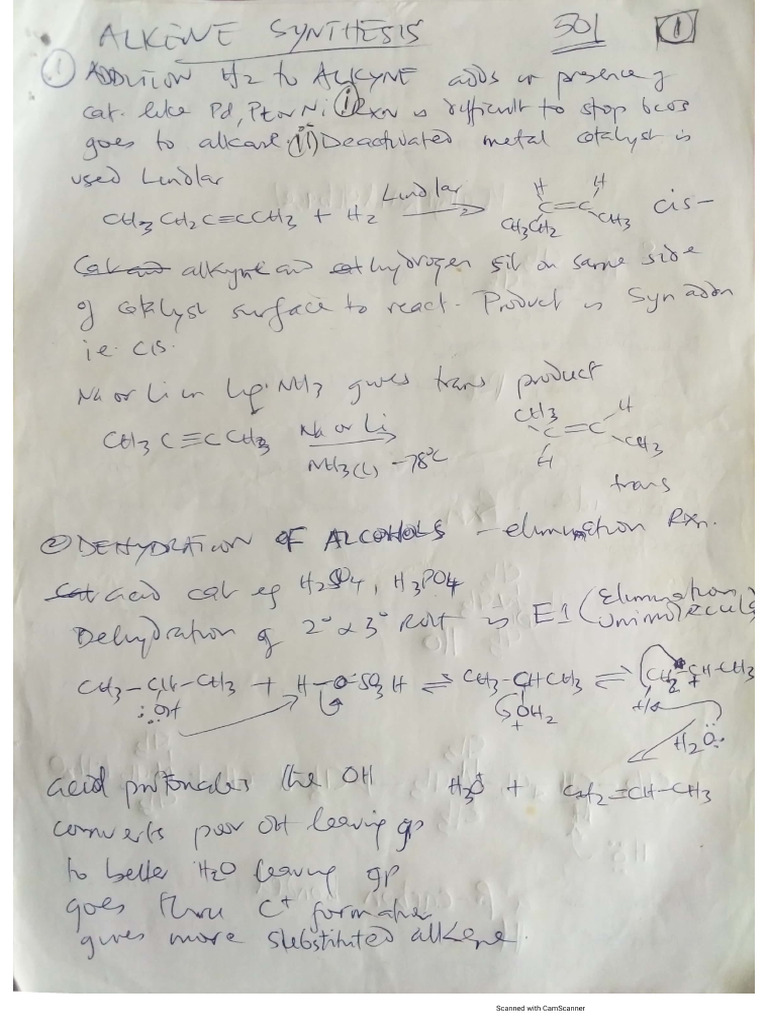 ALKENE SYNTHESIS 301 1
① ADDITION H2 to ALKYNE adds in presence of
cat. like Pd, Pt or Ni ⓘ Rxn is difficult to stop bcos
goes to alkane. (ii) Deactivated metal catalyst is
used Lindlar
CH3 CH2 C≡CCH3 + H2 Lindlar → H H C=C CH3CH2 CH3 cis-
alkyne and hydrogen sit on same side
of catalyst surface to react. Product is Syn addn
i.e. cis.
Na or Li in liq. NH3 gives trans product
CH3 C≡C CH3 Na or Li → NH3(l) -78°C CH3 H C=C H CH3
trans
② DEHYDRATION OF ALCOHOLS - elimination Rxn.
acid cat eg H2SO4, H3PO4
Dehydration of 2° & 3° ROH is E1 (Elimination Unimolecular)
CH3-CH-CH3 + H-O-SO3H ⇌ CH3-CHCH3 ⇌ CH2-CH-CH3
:OH OH2 + H
H2O:
acid protonates the OH H3O + CH2=CH-CH3
converts poor OH leaving gp
to better H2O leaving gp
goes thru C+ formation
gives more substituted alkene.
Scanned with CamScanner